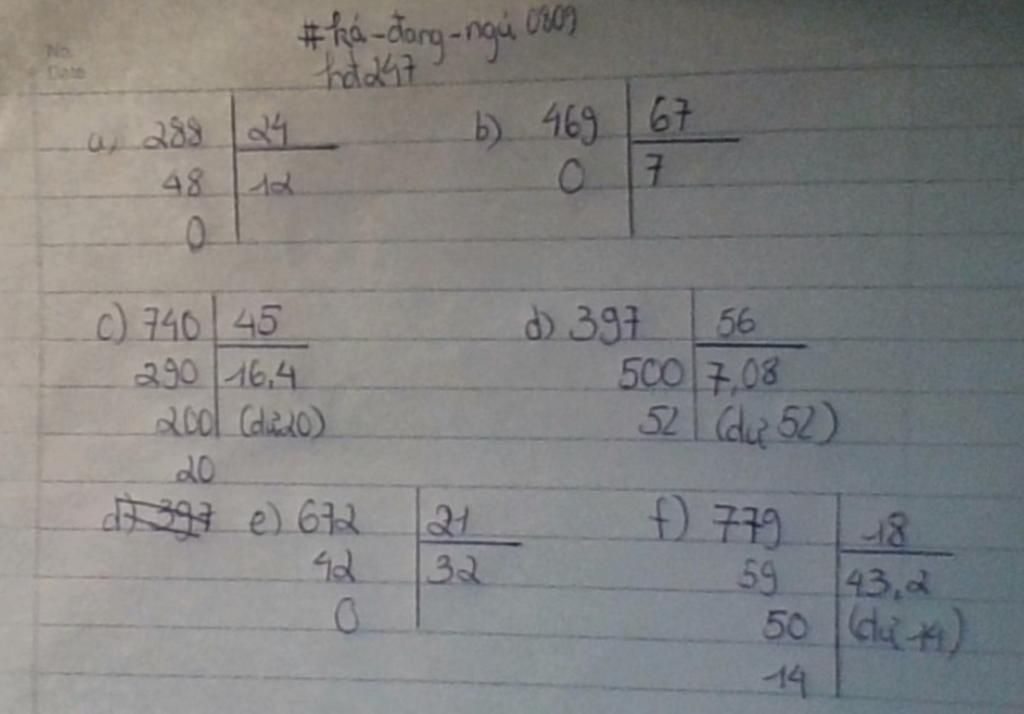 No.
Date
#ká-đang-ngủ 0809
hđ247
a, 288 24
48 12
0
b) 469 67
0 7
c) 740 45
290 16,4
200 (dư 20)
20
d) 397 56
500 7,08
52 (dư 52)
d) 397
e) 672 21
42 32
0
f) 779 18
59 43,2
50 (dư 14)
14